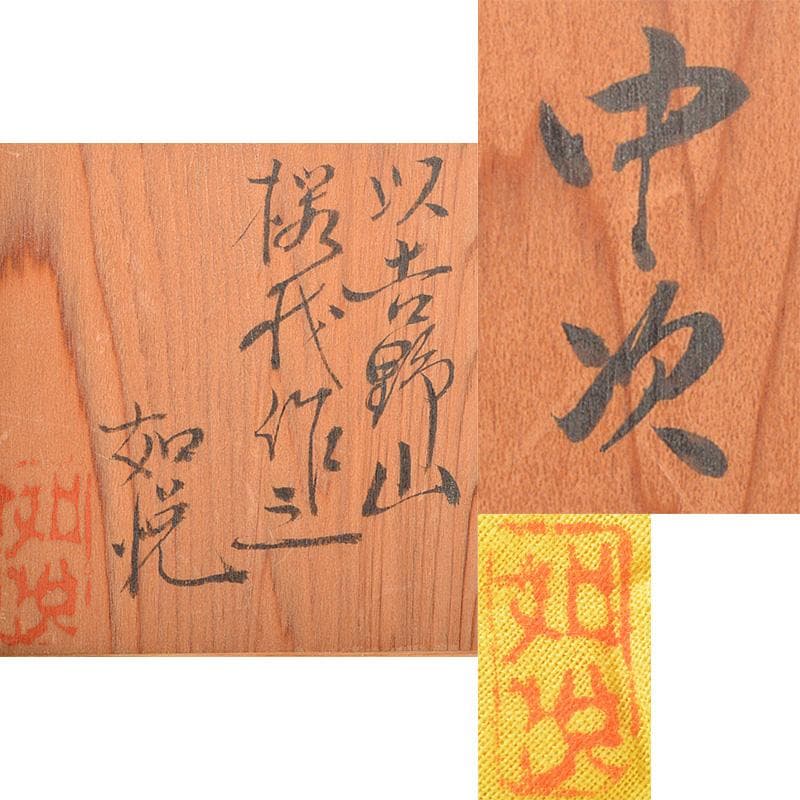 中次
以吉野山
桜茂作之
如悦
如悦
如悦